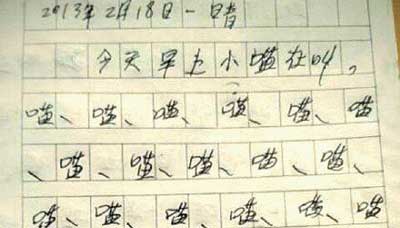 2013年2月18日一晴
今天早上小喵在叫。
喵、喵、喵、喵、喵、喵
、喵、喵、喵、喵、喵、
喵、喵、喵、喵、喵、喵